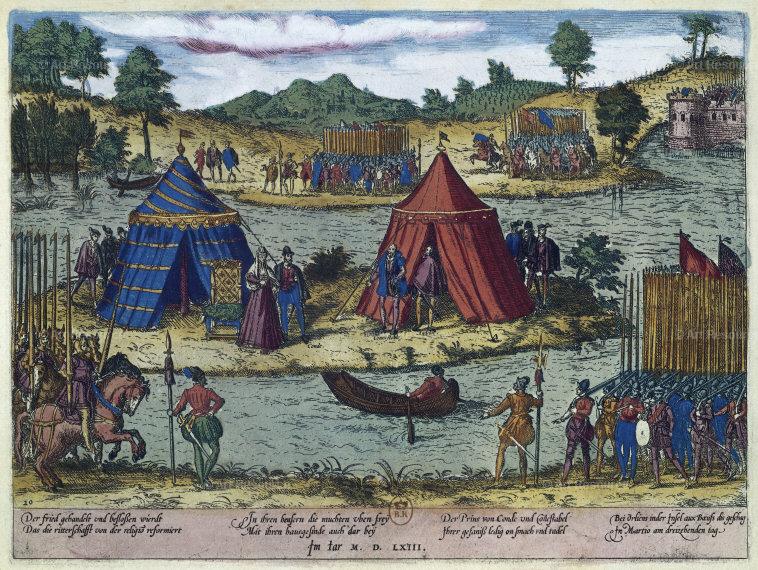 20
Der fried gehandelt vnd beschloßen wierdt
Das die ritterschafft von der religiō reformiert
In ihren heusern die muchten vben frey
Mit ihren hausgesinde auch dar bey
Der Prins von Conde vnd Cōestabel
Ihrer gefāniß ledig on smach vnd tadel
Bei Orliens inder Insel aux Bœufs dis geschag
In Martio am dreizehenden tag.
Im Iar M. D. LXIII.